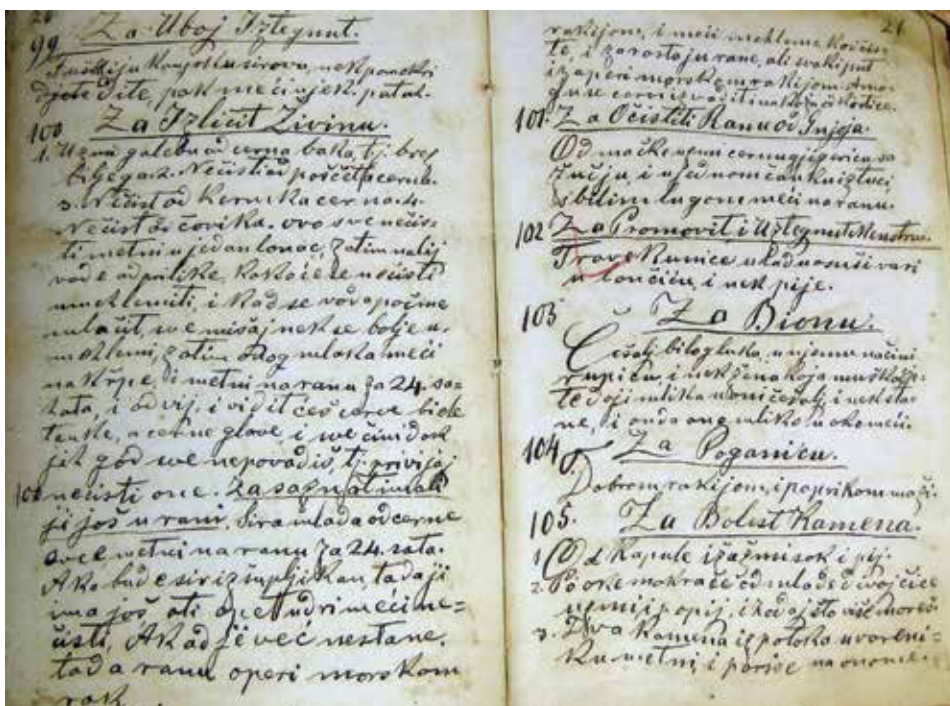 99 Za Uboj Iztegnut.
djete dite, pak meći njek. putah.
100 Za Izličit Živinu.
1. Uzmi galeba od cerna baka, tj. brez
biljega 2. Nečist od poščeta cerna.
3. Nečist od kermka cerna. 4.
Nečist od čovika. ovo sve nečis-
ti metni u jedan lonac, zatim nalij
vode od prilike, koko će se nečisti
umeklemiti, i kad se voda počme
mlačit, sve mišaj nek se bolje u-
meklemi, zatim toga mlaka meći
na kerpe, i metni na ranu za 24. sa-
tata, i odvij, i vidit ćeš cerve bide
tanke, a cerne glave, i sve čini dok
jih god sve nepovadiš, tj. privijaj
nečisti one. Za saznati imali
ji još u rani. Sira mlada od cerne
ovce metni na ranu za 24. sata.
Ako bude sir izšupljikan, tada ji
ima još, ali opet udri meći ne=
čisti, A kad ji već nestane,
tada ranu operi morskom
rak
26
rakijom, i meći mehleme koji čis-
te, i zarastoju rane, ali svaki put
izaperi morskom rakijom
101. Za Očistiti Ranu od Gnjoja.
Od mačke uzmi cernu gjigericu sa
žučju, i ujedno mčanku iztuci
s bilim lugom meći na ranu.
102 Za Promovit i Uztegnut Menstru.
Trave Kunice u hladu osuši vari
u lončiću, i nek pije.
103 Za Bionu.
Češalj bilog luka, u njemu načini
rupicu, i nek žena koja muško dje-
te doji mlika u oni češalj, i nek sta-
ne, i onda ono mliko u oko meći.
104 Za Poganicu.
Dobrom rakijom, i paprikom maži.
105. Za Bolest Kamena.
1 Od kapule izažmi sok i pij.
2. Po oke mokraće od mlade divojčice
uzmi i popij, i hodaj što više moreš.
3. Dva kamena iz potoka u voreni=
ku metni, i poriše na onome.